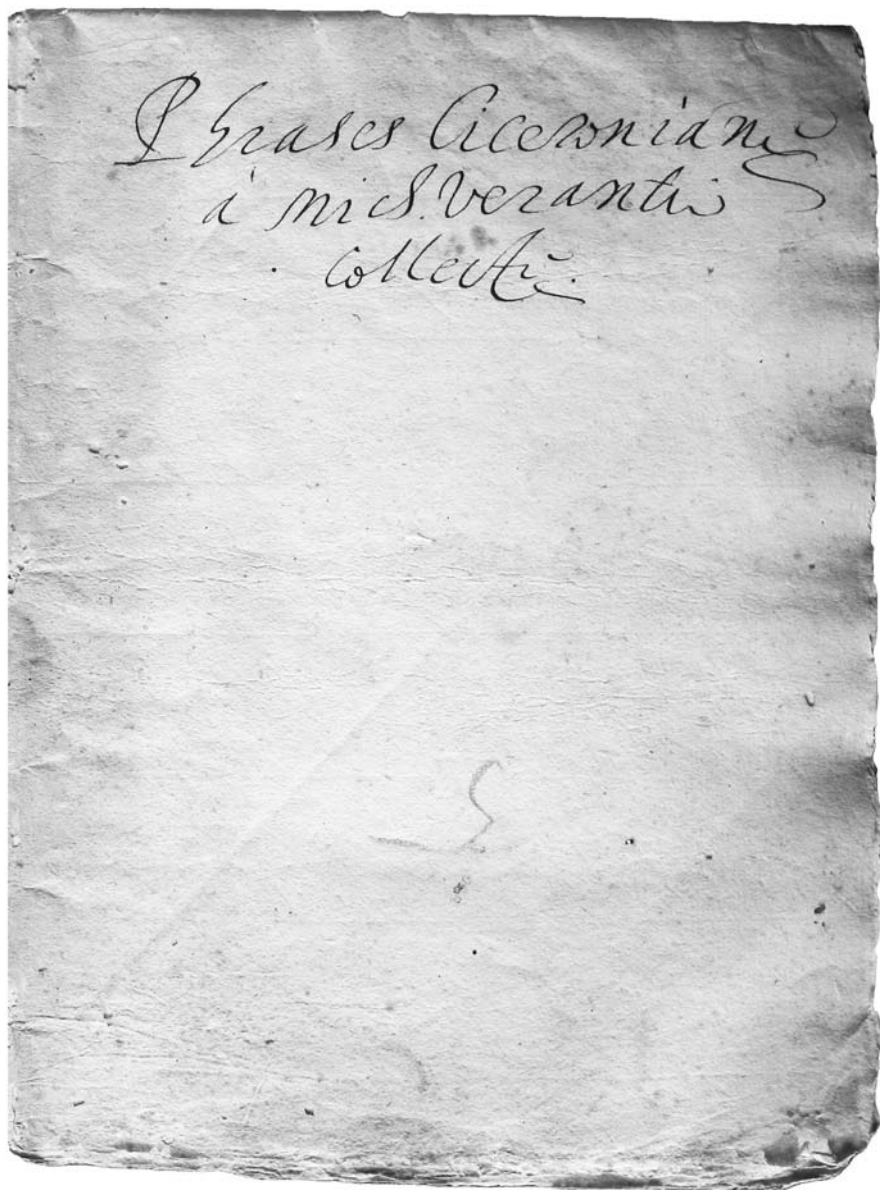 Phrases Ciceronianę
à Mich. Verantio
Collectę.